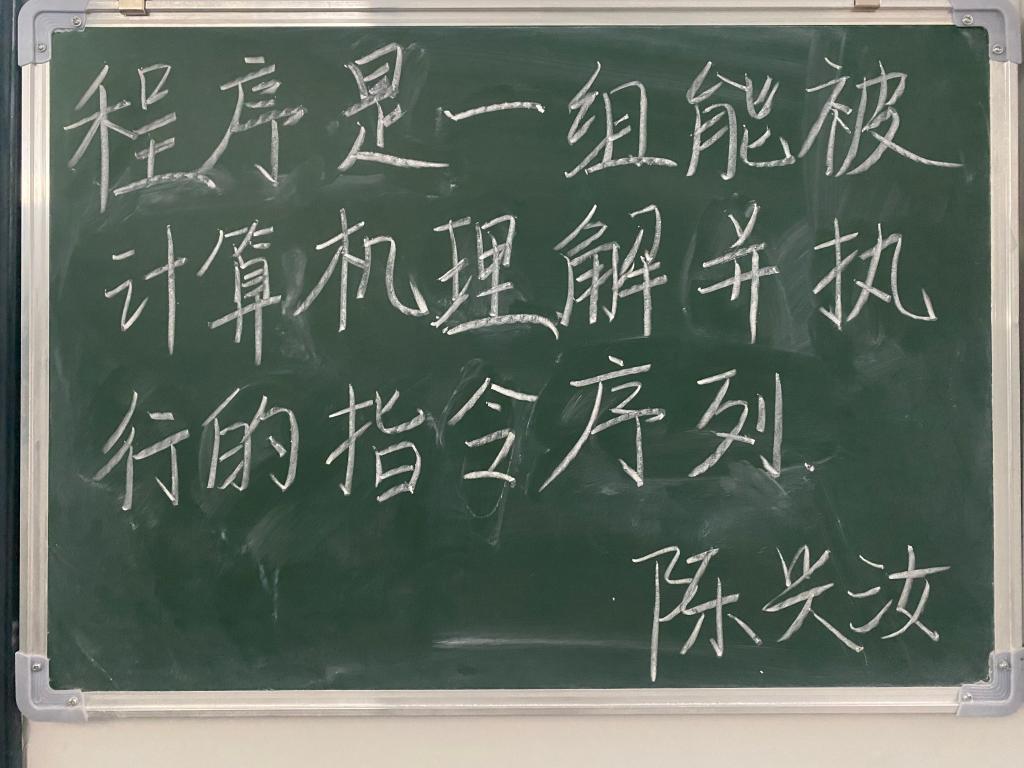 程序是一组能被
计算机理解并执
行的指令序列.
陈兴汝